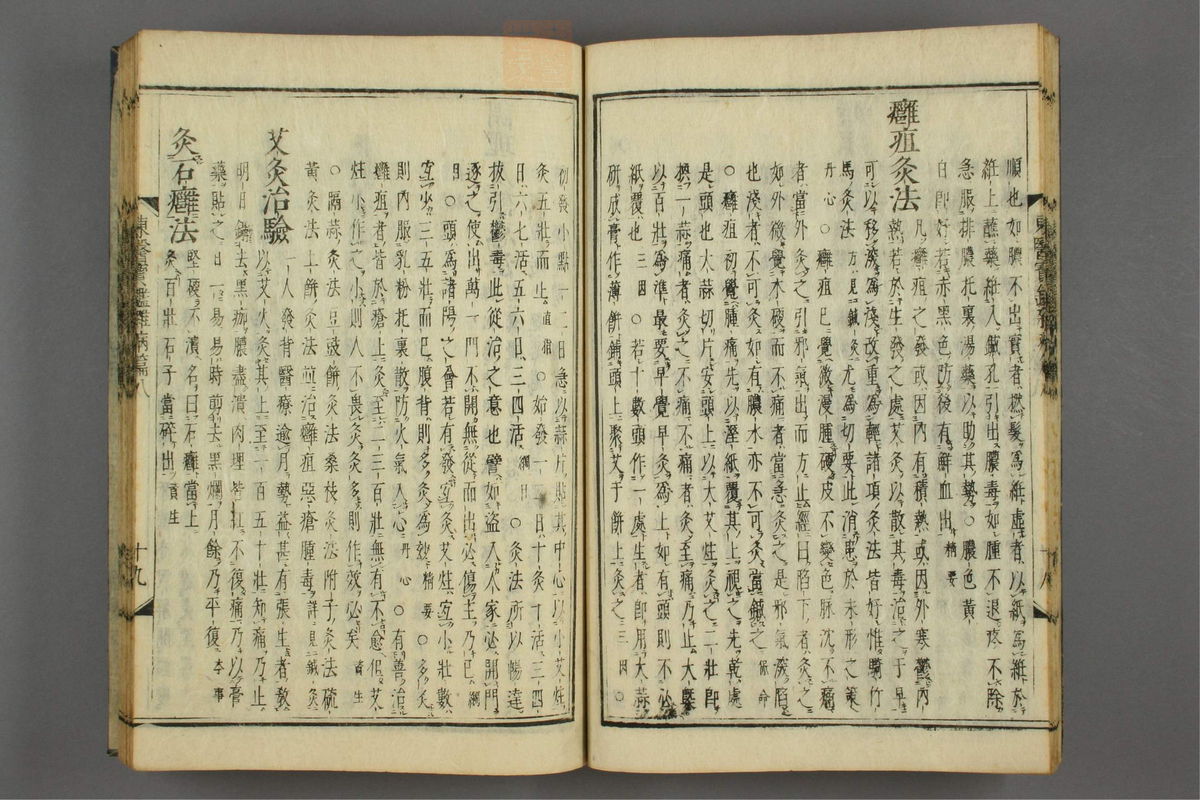 順也如膿不出實者撚髮爲紝虛者以紙爲紝於
紝上蘸藥紝入鍼孔引出膿毒如腫不退疼不除
急服排膿托裏湯藥以助其勢○膿色黃
白卽好若赤黑色防後有鮮血出精要
癰疽灸法
凡癰疽之發或因內有積熱或因外寒鬱內
熱若於生發之處艾灸以散其毒治之于早
可以移深爲淺改重爲輕諸項灸法皆好惟騎竹
馬灸法方見鍼灸尤爲切要此消患於未形之策
丹心○癰疽已覺微漫腫硬皮不變色脉沈不痛
者當外灸之引邪氣出而方止經曰陷下者灸之
如外微覺木硬而不痛者當急灸之是邪氣深陷
也淺者不可灸如有膿水亦不可灸當鍼之保命
○癰疽初覺腫痛先以溼紙覆其上視之先乾處
是頭也大蒜切片安頭上以大艾炷灸之二壯卽
換一蒜痛者灸之不痛不痛者灸至痛乃止大槩
以百壯爲準最要早覺早灸爲上如有頭則不必
紙覆也三因○若十數頭作一處生者卽用大蒜
硏成膏作薄餠鋪頭上聚艾于餠上灸之三因○
初發小點一二日急以蒜片貼其中心以小艾炷
灸五壯而止直指○如發一二日十灸十活三四
日六七活五六日三四活綱目○灸法所以暢達
拔引鬱毒此從治之意也譬如盜入人家必開門
逐之使出萬一門不開無從而出必傷主乃已綱
目○頭爲諸陽之會若有發宜灸艾炷宜小壯數
宜少三五壯而已腹背則多灸爲妙精要○多灸
則內服乳粉托裏散防火氣入心丹心○有善治
癰疽者皆於瘡上灸至二三百壯無有不愈但艾
炷小作之小則人不畏灸灸多則作效必矣資生
○隔蒜灸法豆豉餠灸法桑枝灸法附子灸法硫
黃灸法上餠灸法並治癰疽惡瘡腫毒詳見鍼灸
艾灸治驗
一人發背醫療逾月勢益甚有張生者敎
以艾火灸其上至一百五十壯知痛乃止
明日鑷去黑痂膿盡潰肉理皆紅不復痛乃以膏
藥貼之日一易易時剪去黑爛月餘乃平復本事
灸石癰法
堅硬不潰名曰石癰當上
灸百壯石子當碎出資生
東醫寶鑑雜病篇八
十九